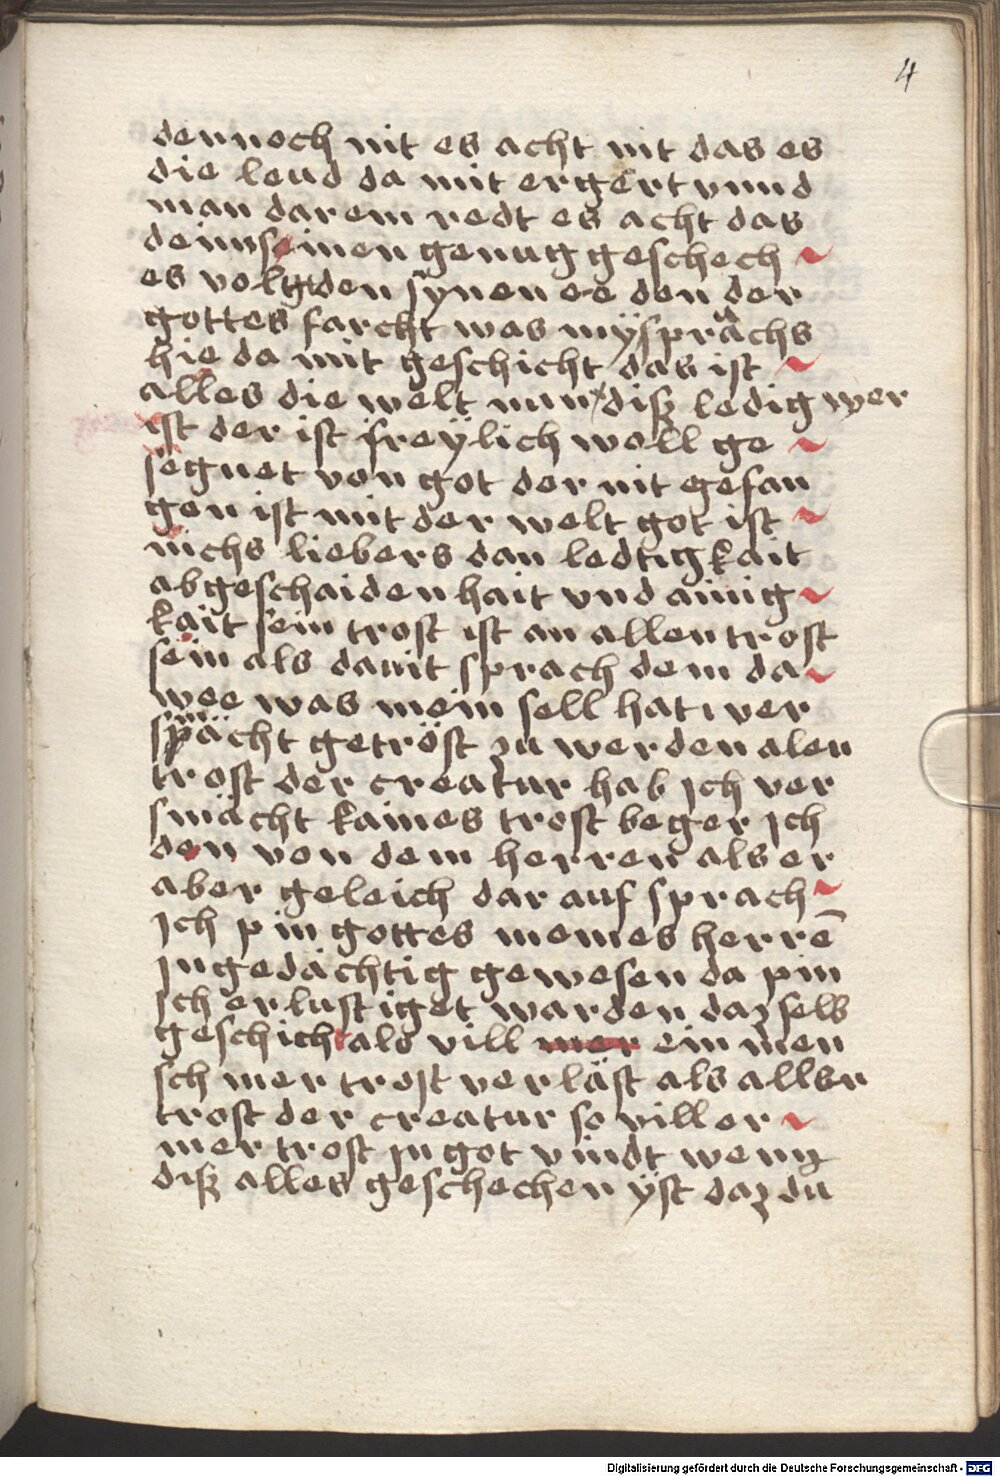 4
dennoch nit es acht nit das es
die leud da mit ergert vnnd
man darem redt es acht das
dennseinen genug geschech
es volgt den synen ee den der
gottes farcht was mÿsprächs
hie da mit geschicht das ist
alles die welt nun diß ledig wer
ist der ist freÿlich woll ge
segnet von got der nit gefan
gen ist mit der welt got ist
nichs liebers dan ledtigkait
abgeschaidenhait vnd ainig
kait sein trost ist an allen trost
sein als dauit sprach dem da
wee was mein sell hat ver
smächt getröst zu werden alen
trost der creatur hab ich ver
smächt kaines trost beger ich
den von dem herren als er
aber geleich dar auf sprach
Ich pin gottes meines herrē
Ingedächtig gewesen da pin
ich erlustiget warden daz selb
geschicht als vill mer ein men
sch mer trost verläst als aller
trost der creatur so vill er
mer trost in got vindt wenn
diß alles geschechen ÿst daz du
Digitalisierung gefördert durch die Deutsche Forschungsgemeinschaft - DFG